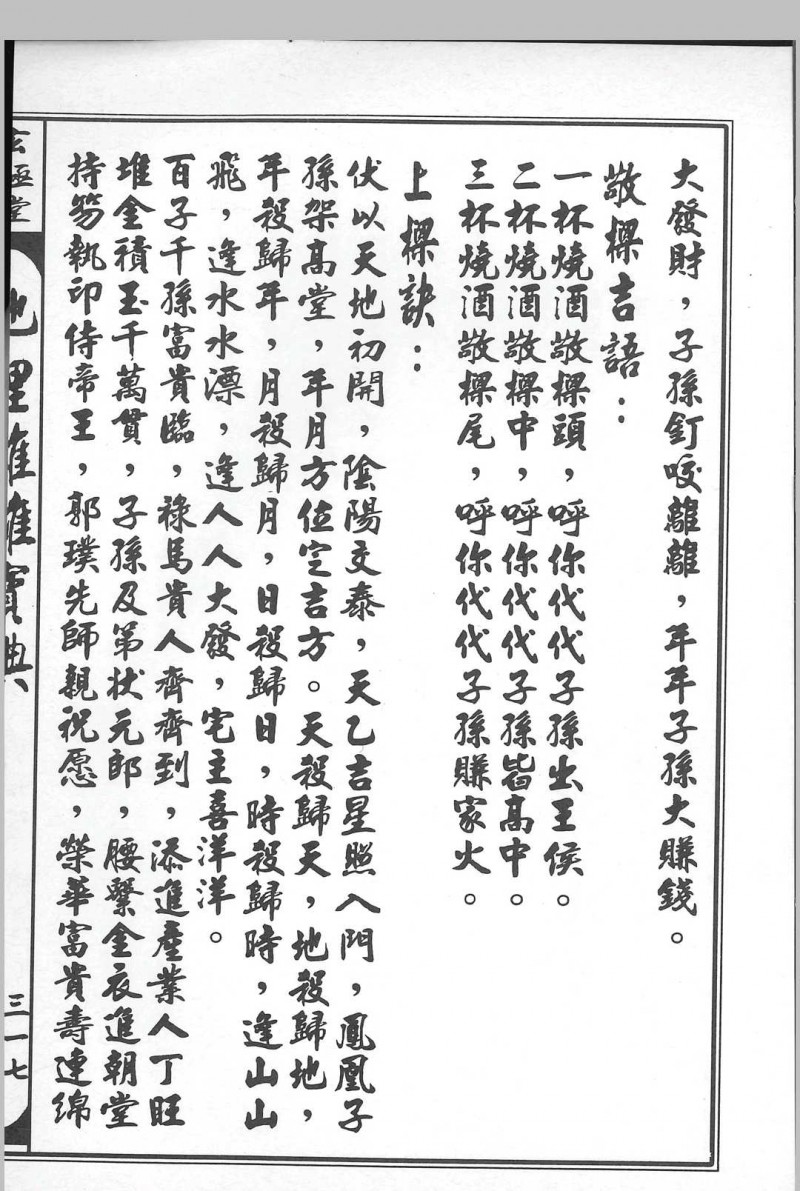 大發財，子孫釘咬離離，年年子孫大賺錢。
敬樑吉語：
一杯燒酒敬樑頭，呼你代代子孫出王侯。
二杯燒酒敬樑中，呼你代代子孫皆高中。
三杯燒酒敬樑尾，呼你代代子孫賺家火。
上樑訣：
伏以天地初開，陰陽交泰，天乙吉星照入門，鳳凰子
孫架高堂，年月方位定吉方。天殺歸天，地殺歸地，
年殺歸年，月殺歸月，日殺歸日，時殺歸時，逢山山
飛，逢水水漂，逢人人大發，宅主喜洋洋。
百子千孫富貴臨，祿馬貴人齊齊到，添進產業人丁旺
堆金積玉千萬貫，子孫及第狀元郎，腰繫金衣進朝堂
持笏執印侍帝王，郭璞先師親祝愿，榮華富貴壽連綿
玄極堂
地理雜雜寶典
三一七